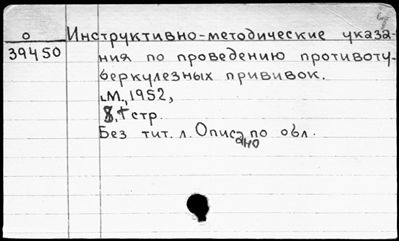 о Инструктивно-методические указа-
39450 ния по проведению противоту-
беркулезных прививок.
М., 1952,
8 стр.
Без тит. л. Описано по обл.